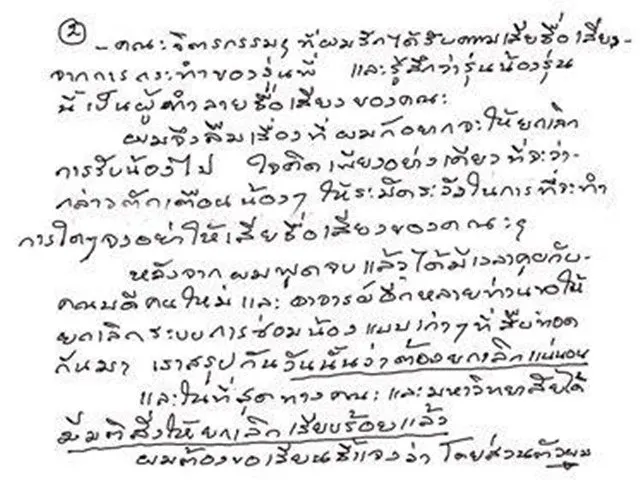 ②
- คณะจิตรกรรมฯ ที่ผมรักได้รับความเสียชื่อเสียง-
จากการกระทำของรุ่นพี่ และรู้สึกว่ารุ่นน้องรุ่น
นี้เป็นผู้ทำลายชื่อเสียงของคณะ
ผมจึงลืมเรื่องที่ผมก็อยากจะให้ยกเลิก
การรับน้องไป ใจคิดเพียงอย่างเดียวที่จะว่า-
กล่าวตักเตือนน้องๆ ให้ระมัดระวังในการที่จะทำ
การใดๆจงอย่าให้เสียชื่อเสียงของคณะฯ
หลังจากผมพูดจบแล้วได้มีเวลาคุยกับ-
คณบดีคนใหม่และอาจารย์อีกหลายท่านขอให้
ยกเลิกระบบการซ่อมน้องแบบเก่าๆที่สืบทอด
กันมา เราสรุปกันวันนั้นว่าต้องยกเลิกแน่นอน
และในที่สุดทางคณะและมหาวิทยาลัยได้
มีมติสั่งให้ยกเลิกเรียบร้อยแล้ว
ผมต้องขอเรียนชี้แจงว่า โดยส่วนตัวผม